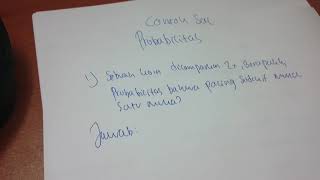 Contoh Soal
Probabilitas
1) Sebuah koin dilemparkan 2x, berapakah
Probabilitas bahwa paling sedikit muncul
satu muka?
Jawab: